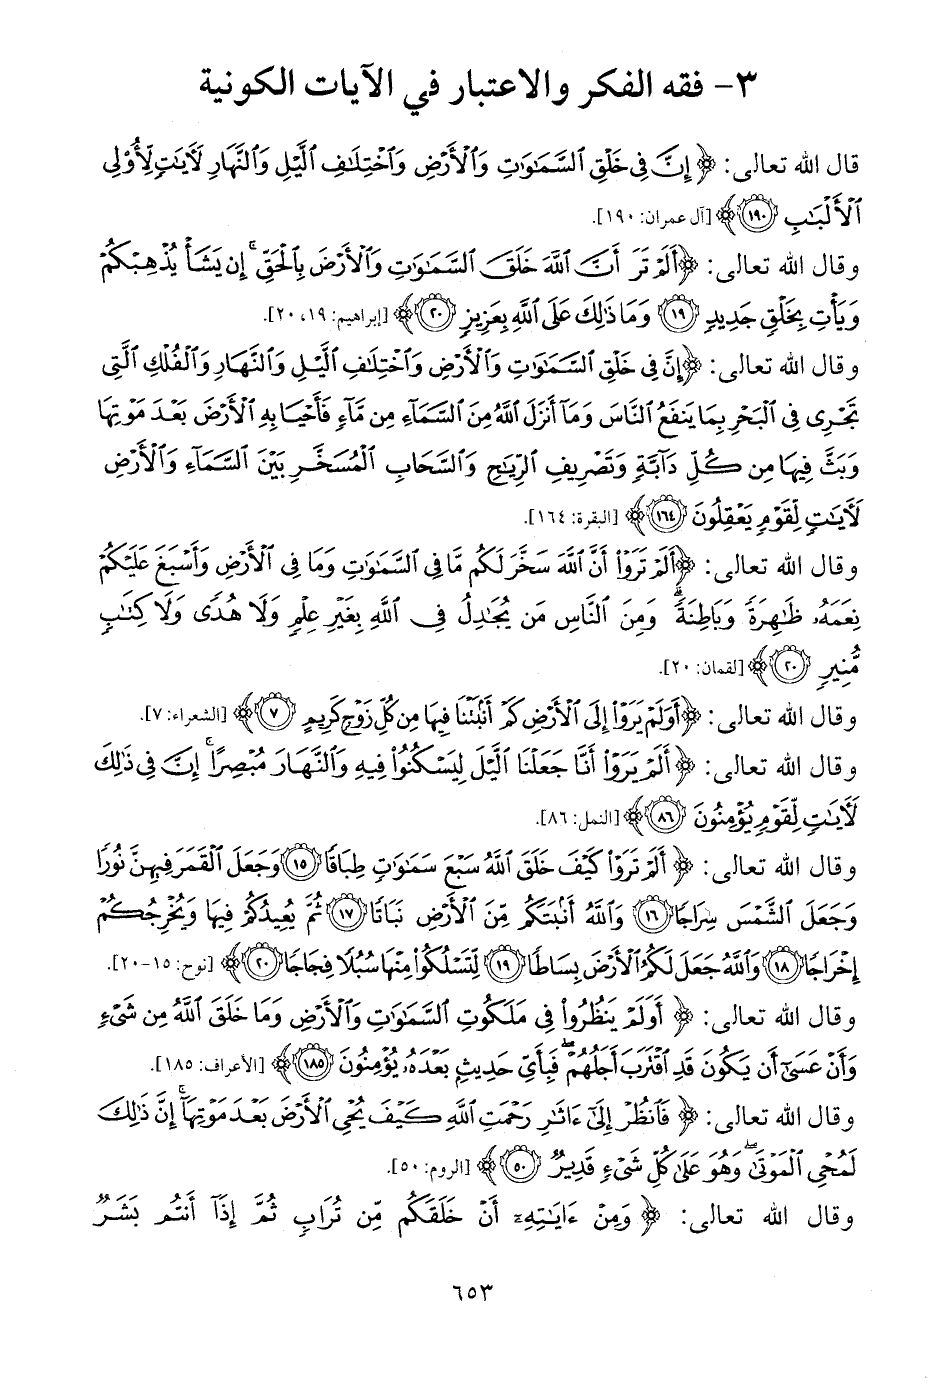 ٣- فقه الفكر والاعتبار في الآيات الكونية
قال الله تعالى: ﴿إِنَّ فِي خَلْقِ السَّمَاوَاتِ وَالْأَرْضِ وَاخْتِلَافِ اللَّيْلِ وَالنَّهَارِ لَآيَاتٍ لِّأُولِي
الْأَلْبَابِ ﴿١٩٠﴾﴾ [آل عمران: ١٩٠].
وقال الله تعالى: ﴿أَلَمْ تَرَ أَنَّ اللَّهَ خَلَقَ السَّمَاوَاتِ وَالْأَرْضَ بِالْحَقِّ ۚ إِن يَشَأْ يُذْهِبْكُمْ
وَيَأْتِ بِخَلْقٍ جَدِيدٍ ﴿١٩﴾ وَمَا ذَٰلِكَ عَلَى اللَّهِ بِعَزِيزٍ ﴿٢٠﴾﴾ [إبراهيم: ١٩، ٢٠].
وقال الله تعالى: ﴿إِنَّ فِي خَلْقِ السَّمَاوَاتِ وَالْأَرْضِ وَاخْتِلَافِ اللَّيْلِ وَالنَّهَارِ وَالْفُلْكِ الَّتِي
تَجْرِي فِي الْبَحْرِ بِمَا يَنفَعُ النَّاسَ وَمَا أَنزَلَ اللَّهُ مِنَ السَّمَاءِ مِن مَّاءٍ فَأَحْيَا بِهِ الْأَرْضَ بَعْدَ مَوْتِهَا
وَبَثَّ فِيهَا مِن كُلِّ دَابَّةٍ وَتَصْرِيفِ الرِّيَاحِ وَالسَّحَابِ الْمُسَخَّرِ بَيْنَ السَّمَاءِ وَالْأَرْضِ
لَآيَاتٍ لِّقَوْمٍ يَعْقِلُونَ ﴿١٦٤﴾﴾ [البقرة: ١٦٤].
وقال الله تعالى: ﴿أَلَمْ تَرَوْا أَنَّ اللَّهَ سَخَّرَ لَكُم مَّا فِي السَّمَاوَاتِ وَمَا فِي الْأَرْضِ وَأَسْبَغَ عَلَيْكُمْ
نِعَمَهُ ظَاهِرَةً وَبَاطِنَةً ۗ وَمِنَ النَّاسِ مَن يُجَادِلُ فِي اللَّهِ بِغَيْرِ عِلْمٍ وَلَا هُدًى وَلَا كِتَابٍ
مُّنِيرٍ ﴿٢٠﴾﴾ [لقمان: ٢٠].
وقال الله تعالى: ﴿أَوَلَمْ يَرَوْا إِلَى الْأَرْضِ كَمْ أَنبَتْنَا فِيهَا مِن كُلِّ زَوْجٍ كَرِيمٍ ﴿٧﴾﴾ [الشعراء: ٧].
وقال الله تعالى: ﴿أَلَمْ يَرَوْا أَنَّا جَعَلْنَا اللَّيْلَ لِيَسْكُنُوا فِيهِ وَالنَّهَارَ مُبْصِرًا ۚ إِنَّ فِي ذَٰلِكَ
لَآيَاتٍ لِّقَوْمٍ يُؤْمِنُونَ ﴿٨٦﴾﴾ [النمل: ٨٦].
وقال الله تعالى: ﴿أَلَمْ تَرَوْا كَيْفَ خَلَقَ اللَّهُ سَبْعَ سَمَاوَاتٍ طِبَاقًا ﴿١٥﴾ وَجَعَلَ الْقَمَرَ فِيهِنَّ نُورًا
وَجَعَلَ الشَّمْسَ سِرَاجًا ﴿١٦﴾ وَاللَّهُ أَنبَتَكُم مِّنَ الْأَرْضِ نَبَاتًا ﴿١٧﴾ ثُمَّ يُعِيدُكُمْ فِيهَا وَيُخْرِجُكُمْ
إِخْرَاجًا ﴿١٨﴾ وَاللَّهُ جَعَلَ لَكُمُ الْأَرْضَ بِسَاطًا ﴿١٩﴾ لِّتَسْلُكُوا مِنْهَا سُبُلًا فِجَاجًا ﴿٢٠﴾﴾ [نوح: ١٥-٢٠].
وقال الله تعالى: ﴿أَوَلَمْ يَنظُرُوا فِي مَلَكُوتِ السَّمَاوَاتِ وَالْأَرْضِ وَمَا خَلَقَ اللَّهُ مِن شَيْءٍ
وَأَنْ عَسَىٰ أَن يَكُونَ قَدِ اقْتَرَبَ أَجَلُهُمْ ۖ فَبِأَيِّ حَدِيثٍ بَعْدَهُ يُؤْمِنُونَ ﴿١٨٥﴾﴾ [الأعراف: ١٨٥].
وقال الله تعالى: ﴿فَانظُرْ إِلَىٰ آثَارِ رَحْمَتِ اللَّهِ كَيْفَ يُحْيِي الْأَرْضَ بَعْدَ مَوْتِهَا ۚ إِنَّ ذَٰلِكَ
لَمُحْيِي الْمَوْتَىٰ ۖ وَهُوَ عَلَىٰ كُلِّ شَيْءٍ قَدِيرٌ ﴿٥٠﴾﴾ [الروم: ٥٠].
وقال الله تعالى: ﴿وَمِنْ آيَاتِهِ أَنْ خَلَقَكُم مِّن تُرَابٍ ثُمَّ إِذَا أَنتُم بَشَرٌ
٦٥٣